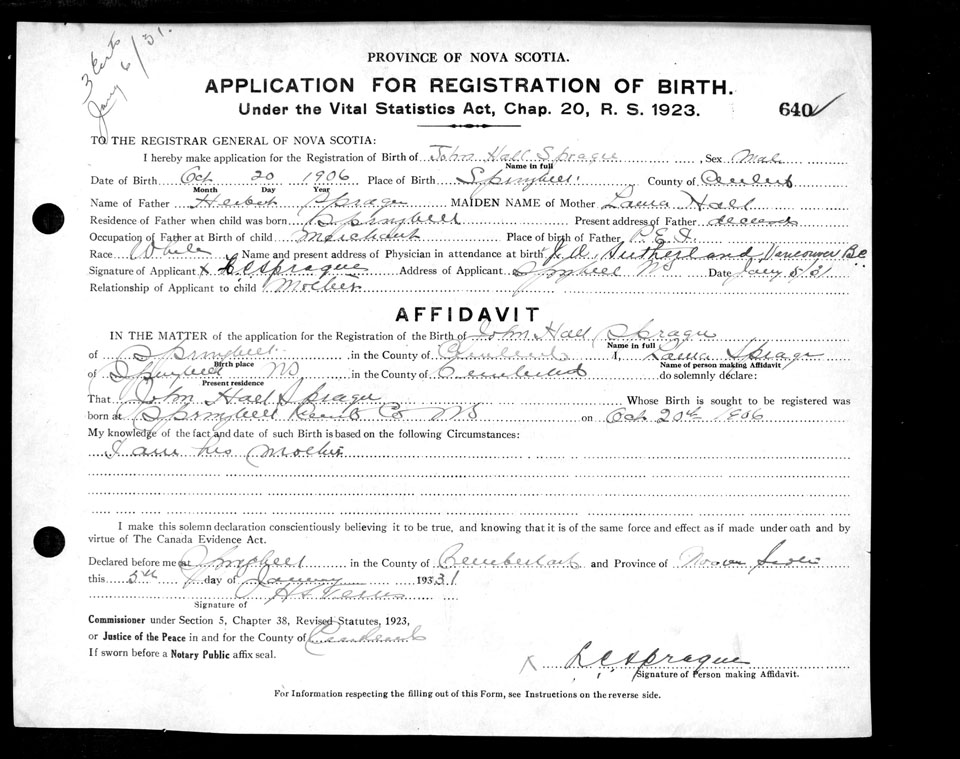 3 Certs
Jany 6/31.
PROVINCE OF NOVA SCOTIA.
APPLICATION FOR REGISTRATION OF BIRTH.
Under the Vital Statistics Act, Chap. 20, R. S. 1923.
640
TO THE REGISTRAR GENERAL OF NOVA SCOTIA:
I hereby make application for the Registration of Birth of John Hall Sprague, Sex Male
Name in full
Date of Birth Oct 20 1906 Place of Birth Springhill County of
Month Day Year
Name of Father Herbert Sprague MAIDEN NAME of Mother Laura Hall
Residence of Father when child was born Springhill Present address of Father deceased
Occupation of Father at Birth of child Merchant Place of birth of Father P.E.I.
Race White, Name and present address of Physician in attendance at birth J. A. Sutherland, Vancouver B.C.
Signature of Applicant x L C Sprague Address of Applicant Springhill NS Date Jany 5/31
Relationship of Applicant to child Mother
AFFIDAVIT
IN THE MATTER of the application for the Registration of the Birth of John Hall Sprague
Name in full
of Springhill in the County of Cumberland I, Laura Sprague
Birth place Name of person making Affidavit
of Springhill NS in the County of Cumberland do solemnly declare:
Present residence
That John Hall Sprague Whose Birth is sought to be registered was
born at Springhill Co NS on Oct 20th 1906
My knowledge of the fact and date of such Birth is based on the following Circumstances:
I am his Mother
I make this solemn declaration conscientiously believing it to be true, and knowing that it is of the same force and effect as if made under oath and by
virtue of The Canada Evidence Act.
Declared before me at Springhill in the County of Cumberland and Province of Nova Scotia
this 5th day of January 193331
Signature of
Commissioner under Section 5, Chapter 38, Revised Statutes, 1923,
or Justice of the Peace in and for the County of Cumberland
If sworn before a Notary Public affix seal.
x L C Sprague
Signature of Person making Affidavit.
For Information respecting the filling out of this Form, see Instructions on the reverse side.